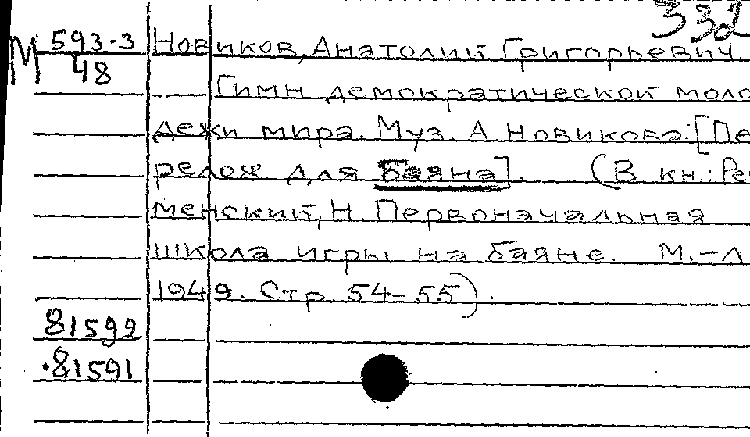 332
М 593-3 Новиков, Анатолий Григорьевич.
48
Гимн демократической моло
дежи мира. Муз. А. Новикова. [Пе
релож для баяна]. (В кн.: Ре
менский, Н. Первоначальная
школа игры на баяне. М.-Л
1949. Стр. 54-55).
81592
81591